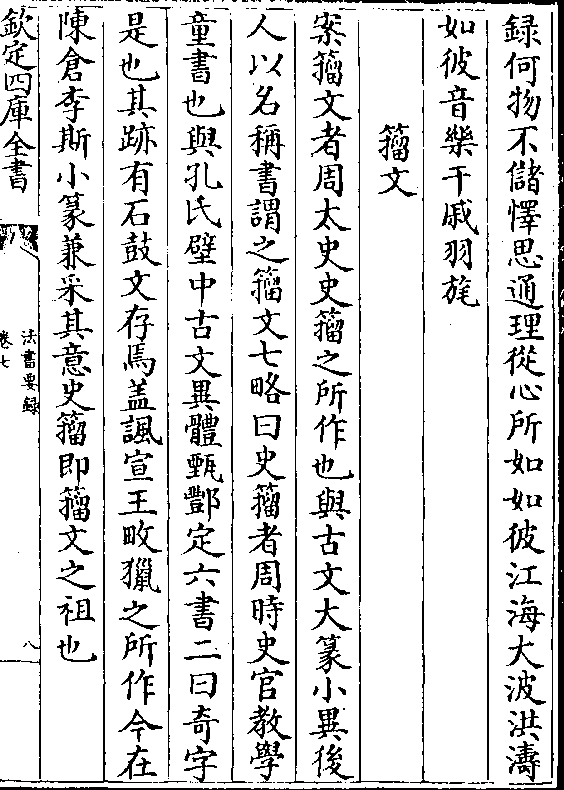 録何物不儲懌思通理從心所如如彼江海大波洪濤
如彼音樂干戚羽旄
籀文
案籀文者周太史史籀之所作也與古文大篆小異後
人以名稱書謂之籀文七略曰史籀者周時史官教學
童書也與孔氏壁中古文異體甄酆定六書二曰奇字
是也其跡有石鼓文存焉盖諷宣王畋獵之所作今在
陳倉李斯小篆兼采其意史籀即籀文之祖也
欽定四庫全書
法書要録
卷七
八